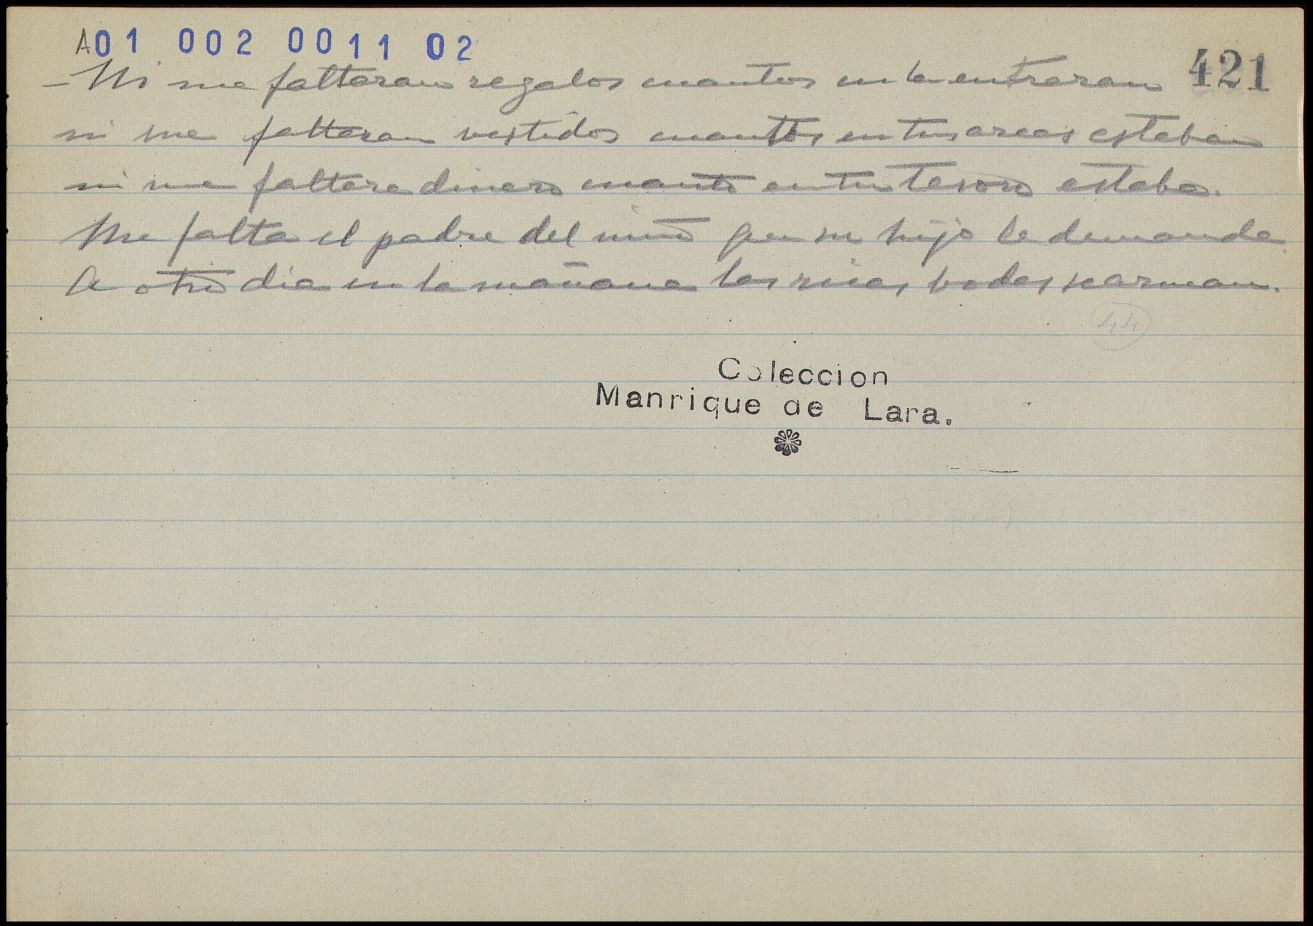 A01 002 0011 02
421
– Ni me faltaran regalos cuantos en la entraran
ni me faltaran vestidos cuantos en tus arcas estaban
ni me faltara dinero cuanto en tu tesoro estaba.
Me falta el padre del niño que su hijo le demanda
A otro dia en la mañana las ricas bodas se arman.
44
Coleccion
Manrique de Lara.